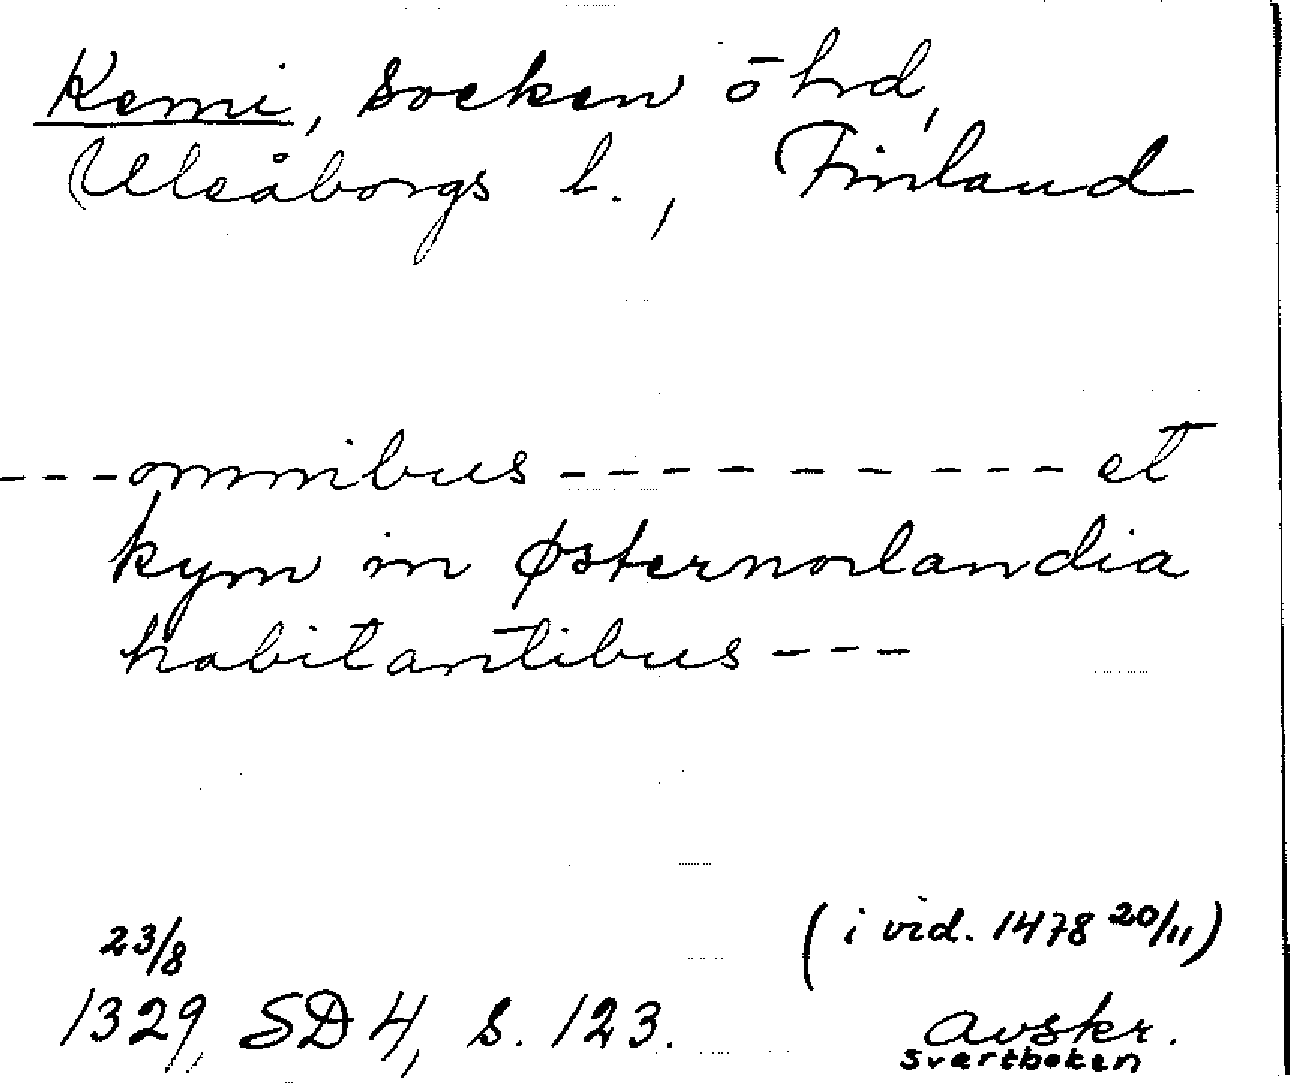 Kemi, socken ö hd,
Uleåborgs l., Finland
---omnibus --------- et
kym in Østernorlandia
habitantibus ---
(i vid. 1478 20/11)
23/8
1329, SD 4, s. 123.
avskr.
svartboken